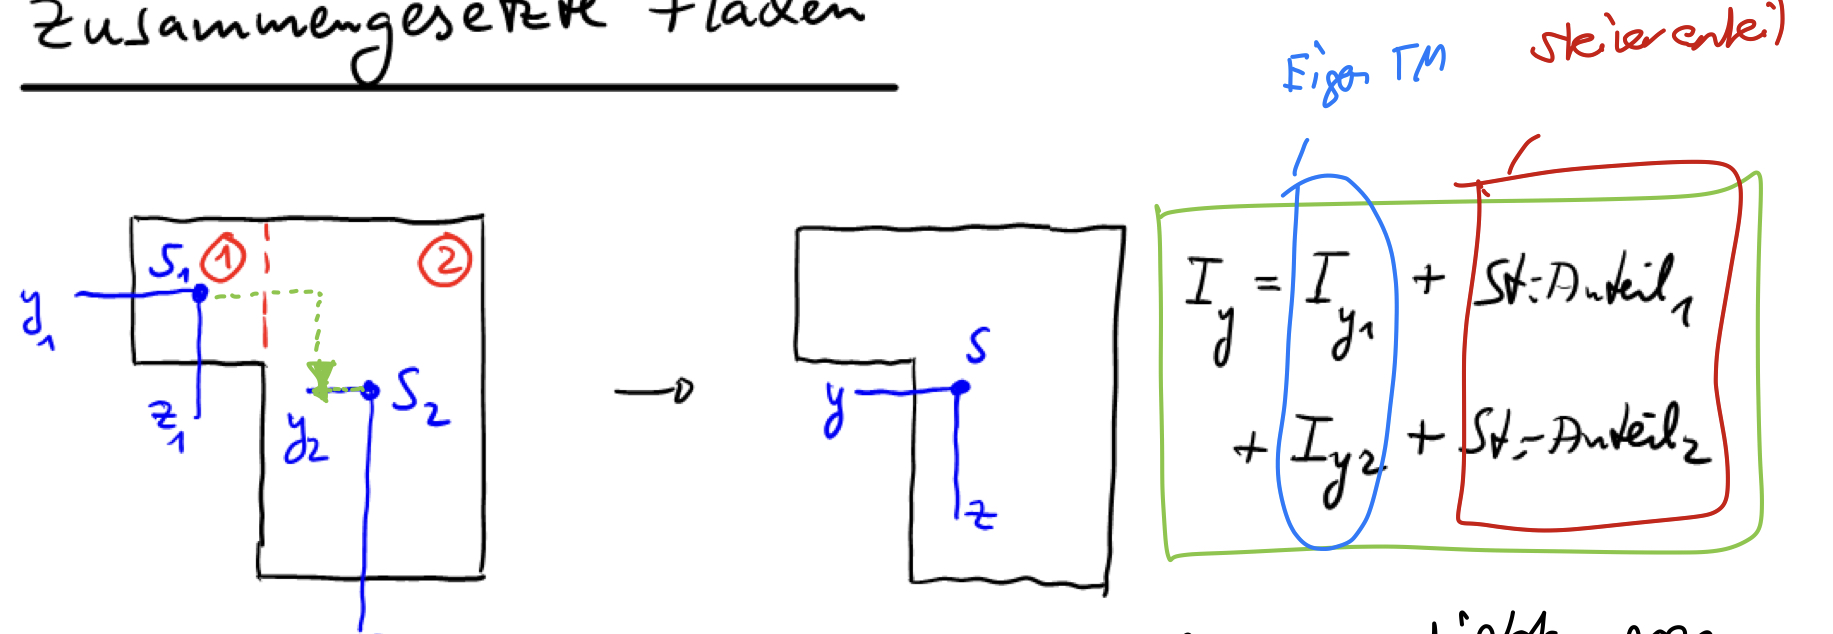 Zusammengesetzte Flächen
Eigen TM
steineranteil
S₁ ① ②
y₁
z₁
S₂
y₂
S
y
z
I_y = I_y1 + St.-Anteil₁
+ I_y2 + St.-Anteil₂